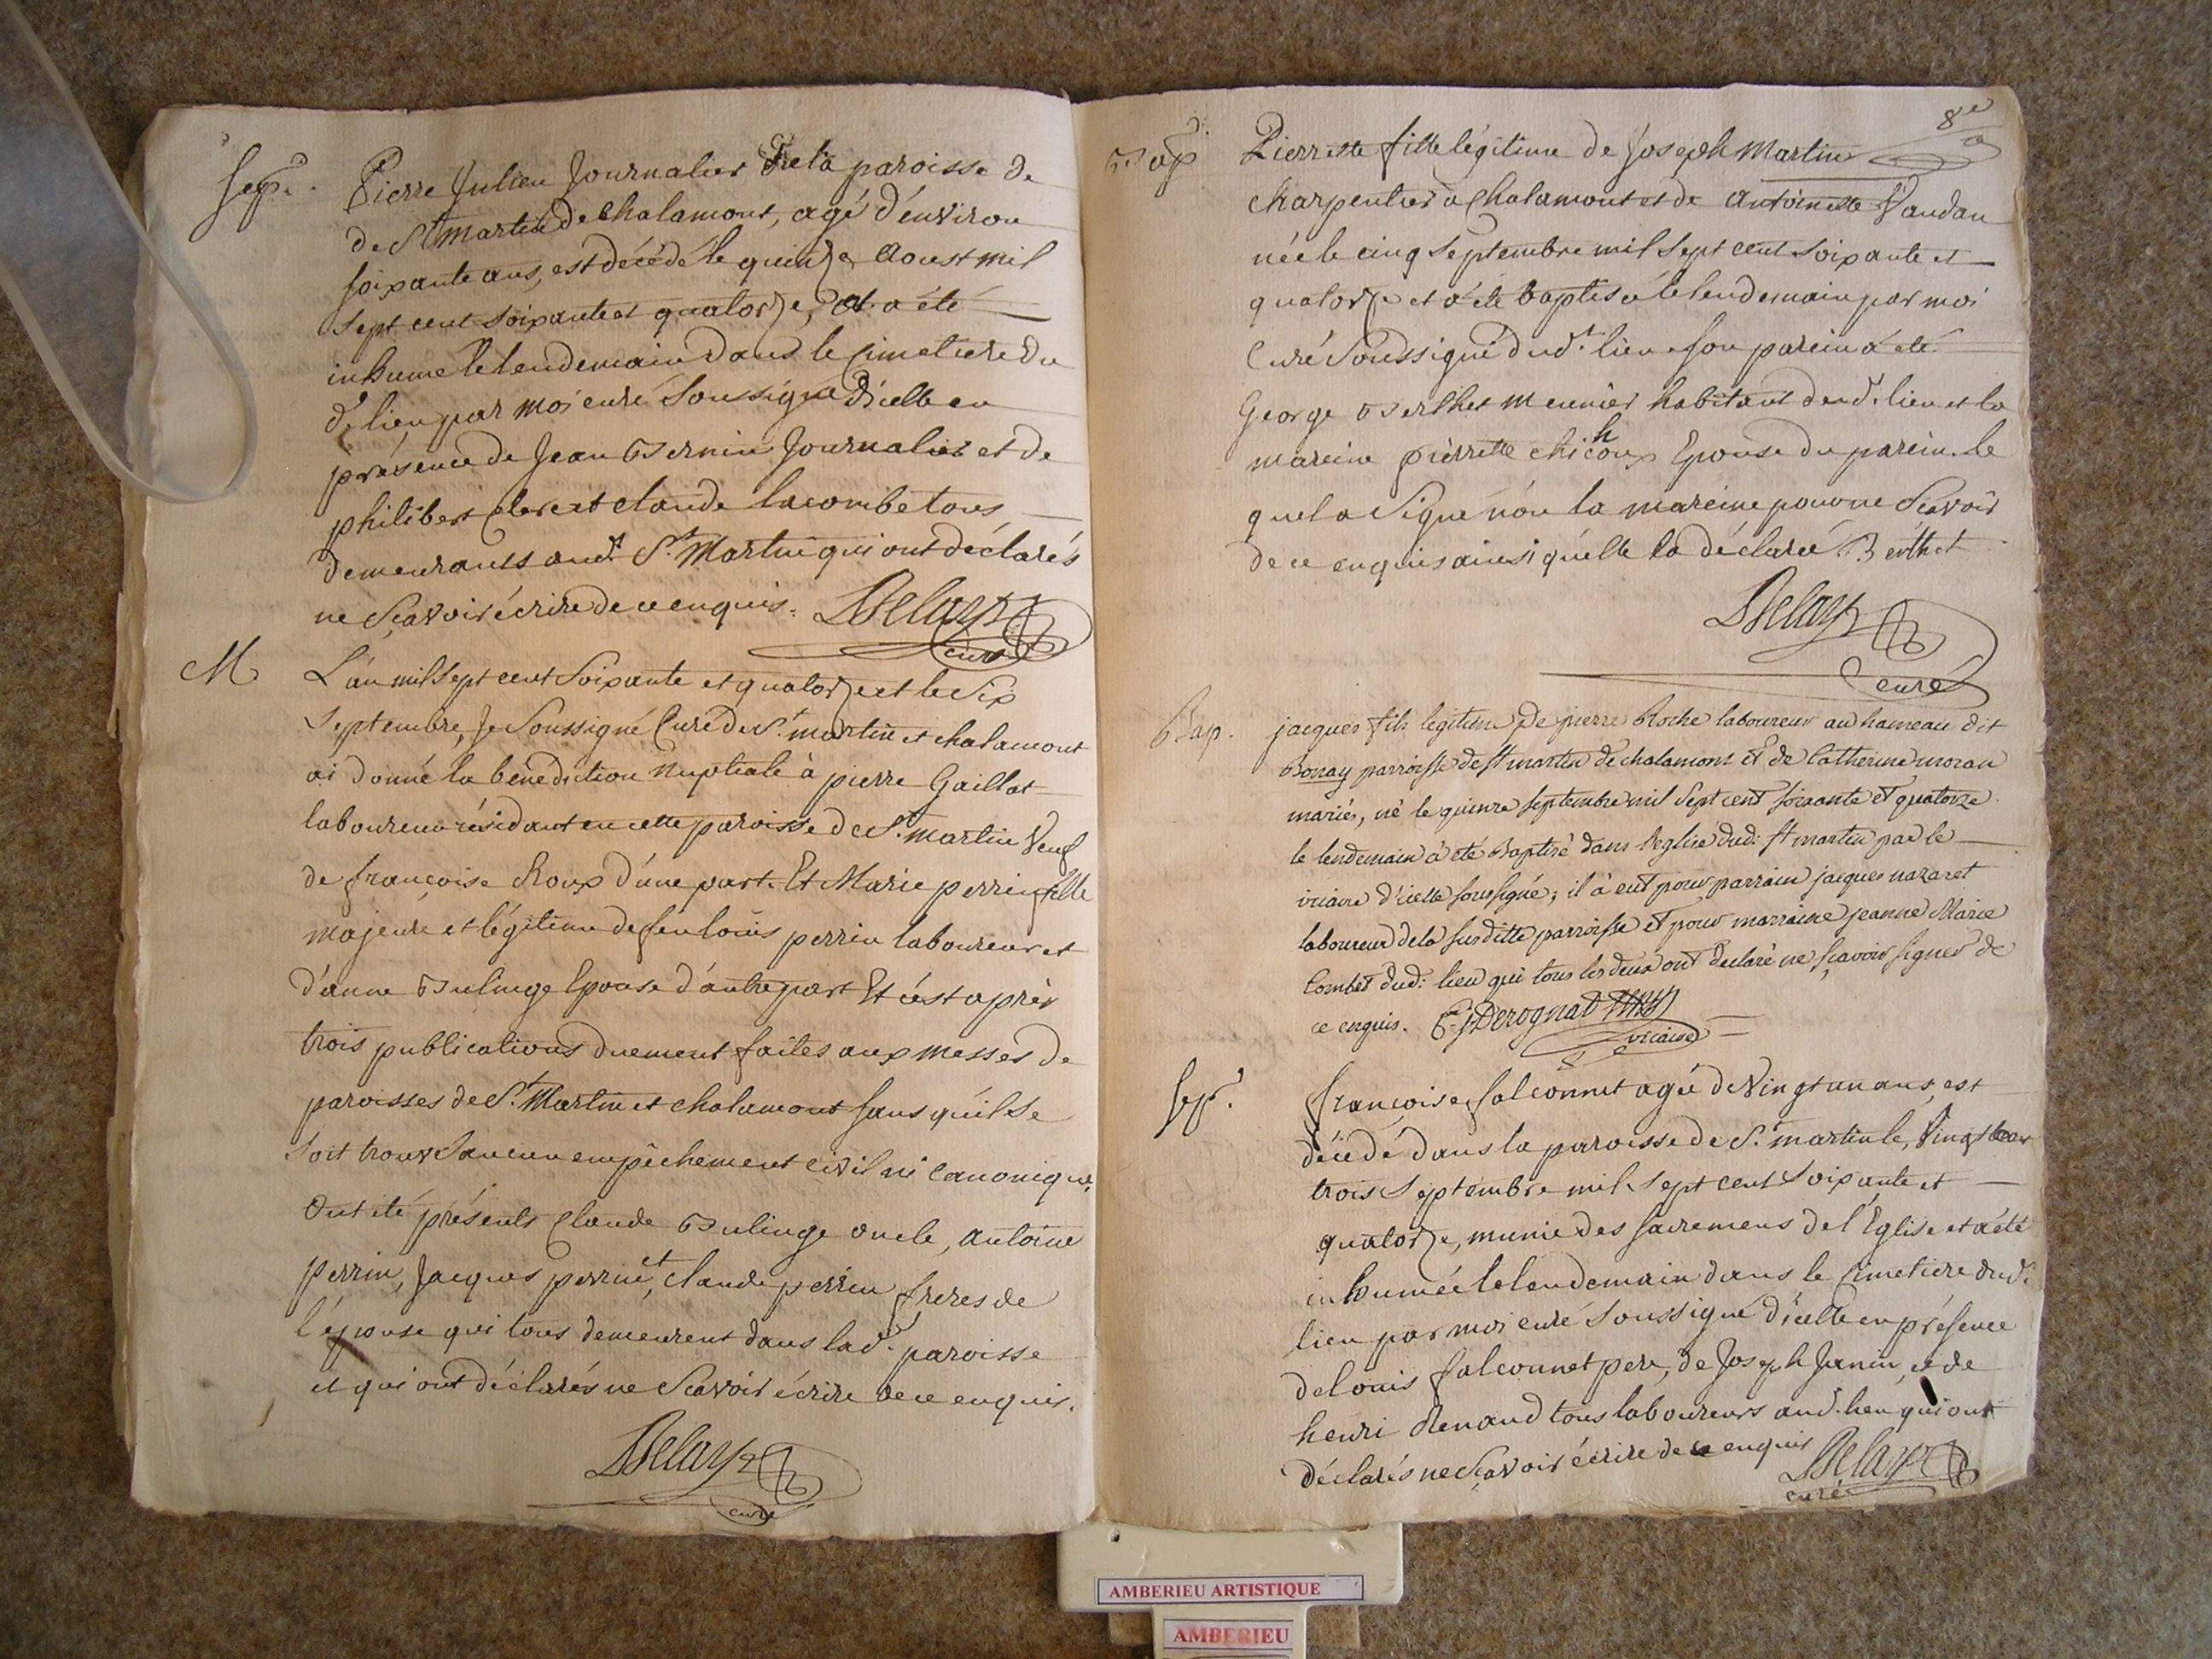 Sep.re
Pierre Julien Journalier de la paroisse de
de St martin de chalamont, agé d'environ
soixante ans, est décédé le quinze Aoust mil
sept cent soixante et quatorze, et a été
inhumé le lendemain dans le cimetiere du
d. lieu par moi curé soussigné d'icelle en
présence de Jean Bernin Journalier et de
philibert clerc et claude lacombe tous
demeurants audt St. Martin qui ont déclarés
ne Sçavoir écrire de ce enquis. Delay
curé
M.
L'an mil sept cent soixante et quatorze et le six
septembre, Je soussigné Curé de St. martin et chalamont
ai donné la bénédiction nuptiale à pierre Gaillat
laboureur résidant en cette paroisse de St. martin Veuf
de françoise Roux d'une part. Et Marie perrin fille
majeure et légitime de feu louis perrin laboureur et
d'anne Bulinge Epouse d'autre part Et c'est après
trois publications duement faites aux messes de
paroisses de St. Martin et chalamont sans qu'il se
soit trouvé aucun empêchement civil ni canonique.
Ont été présents claude Bulinge oncle, antoine
perrin, Jacques perrin et, claude perrin freres de
l'épouse qui tous demeurent dans lad. paroisse
et qui ont déclarés ne Sçavoir écrire de ce enquis.
Delay
curé
8e
Bap
Pierrette fille légitime de Joseph Martin
charpentier à chalamont et de antoinette Vaudan
née le cinq septembre mil sept cent soixante et
quatorze et a été baptisée le lendemain par moi
Curé Soussigné dud. lieu son parein a été
George Berthet meunier habitant dud. lieu et la
mareine pierrette chichoux Epouse du parein. le
quel a signé non la mareine pour ne Sçavoir
de ce enquis ainsi qu'elle la déclaré. Berthet
Delay
curé
Bap.
jacques fils legitime de pierre Roche laboureur au hameau dit
Bonay parroisse de st martin de chalamont et de Catherine moran
mariés, né le quinze septembre mil sept cent soixante et quatorze
le lendemain à eté Baptisé dans l'eglise dud: st martin par le
vicaire d'icelle soussigné; il à eut pour parrain jacques nazaret
laboureur de la susditte parroisse et pour marraine jeanne Marie
Combet dud: lieu qui tous les deux ont declaré ne sçavoir signer de
ce enquis. Derognat
vicaire
Sep.
françoise falconnet agée de vingt un ans, est
décédé dans la paroisse de St. martin le, vingt
trois septembre mil sept cent soixante et
quatorze, munie des sacremens de l'Église et a été
inhumée le lendemain dans le cimetiere dud.
lieu par moi curé soussigné d'icelle en présence
de louis falconnet pere, de Joseph Janin, et de
henri Renaud tous laboureurs aud. lieu qui ont
déclarés ne sçavoir écrire de ce enquis Delay
curé
AMBERIEU ARTISTIQUE
AMBERIEU